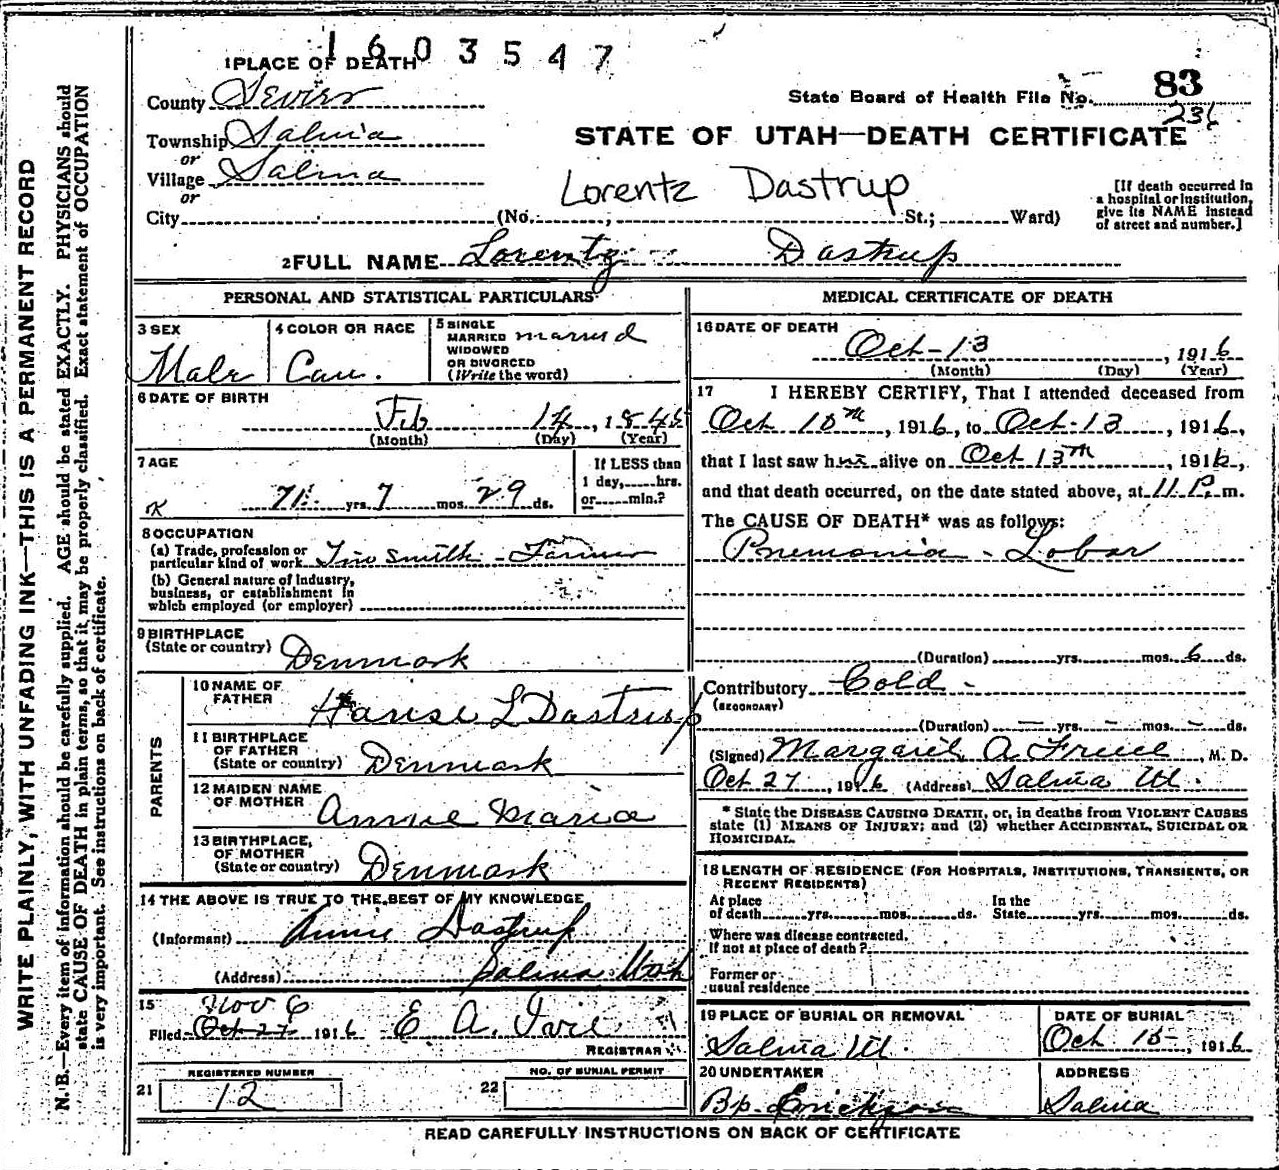 1603547
1 PLACE OF DEATH
County Sevier
State Board of Health File No. 83
236
Township Salina
or
Village Salina
or
STATE OF UTAH—DEATH CERTIFICATE
Lorentz Dastrup
City (No. ; St.; Ward)
[If death occurred in
a hospital or institution,
give its NAME instead
of street and number.]
2 FULL NAME Lorentz Dastrup
PERSONAL AND STATISTICAL PARTICULARS
3 SEX
Male
4 COLOR OR RACE
Cau.
5 SINGLE
MARRIED
WIDOWED
OR DIVORCED
(Write the word)
married
6 DATE OF BIRTH
Feb 14, 1845
(Month) (Day) (Year)
7 AGE
71 yrs. 7 mos. 29 ds.
If LESS than
1 day, hrs.
or min.?
8 OCCUPATION
(a) Trade, profession or
particular kind of work Tin smith - Farmer
(b) General nature of industry,
business, or establishment in
which employed (or employer)
9 BIRTHPLACE
(State or country) Denmark
PARENTS
10 NAME OF
FATHER Hanse L Dastrup
11 BIRTHPLACE
OF FATHER
(State or country) Denmark
12 MAIDEN NAME
OF MOTHER Annie Maria
13 BIRTHPLACE,
OF MOTHER
(State or country) Denmark
14 THE ABOVE IS TRUE TO THE BEST OF MY KNOWLEDGE
(Informant) Annie Dastrup
(Address) Salina Utah
15
Nov 6
Filed Oct 27 1916 E A.
REGISTRAR
21 REGISTERED NUMBER
12
22 NO. OF BURIAL PERMIT
MEDICAL CERTIFICATE OF DEATH
16 DATE OF DEATH
Oct-13, 1916
(Month) (Day) (Year)
17 I HEREBY CERTIFY, That I attended deceased from
Oct 10th, 1916, to Oct-13, 1916,
that I last saw him alive on Oct 13th, 1916,
and that death occurred, on the date stated above, at 11 P. m.
The CAUSE OF DEATH* was as follows:
Pnemonia - Lobar
(Duration) yrs. mos. 6 ds.
Contributory Cold -
(SECONDARY)
(Duration) — yrs. — mos. — ds.
(Signed) A., M. D.
Oct 27, 1916 (Address) Salina Ut.
* State the DISEASE CAUSING DEATH, or, in deaths from VIOLENT CAUSES
state (1) MEANS OF INJURY; and (2) whether ACCIDENTAL, SUICIDAL OR
HOMICIDAL.
18 LENGTH OF RESIDENCE (FOR HOSPITALS, INSTITUTIONS, TRANSIENTS, OR
RECENT RESIDENTS)
At place
of death yrs. mos. ds.
In the
State yrs. mos. ds.
Where was disease contracted,
If not at place of death?
Former or
usual residence
19 PLACE OF BURIAL OR REMOVAL
Salina Ut.
DATE OF BURIAL
Oct 15-, 1916
20 UNDERTAKER
Bp. Erickson
ADDRESS
Salina
READ CAREFULLY INSTRUCTIONS ON BACK OF CERTIFICATE
WRITE PLAINLY, WITH UNFADING INK—THIS IS A PERMANENT RECORD
N. B.—Every item of information should be carefully supplied. AGE should be stated EXACTLY. PHYSICIANS should
state CAUSE OF DEATH in plain terms, so that it may be properly classified. Exact statement of OCCUPATION
is very important. See instructions on back of certificate.